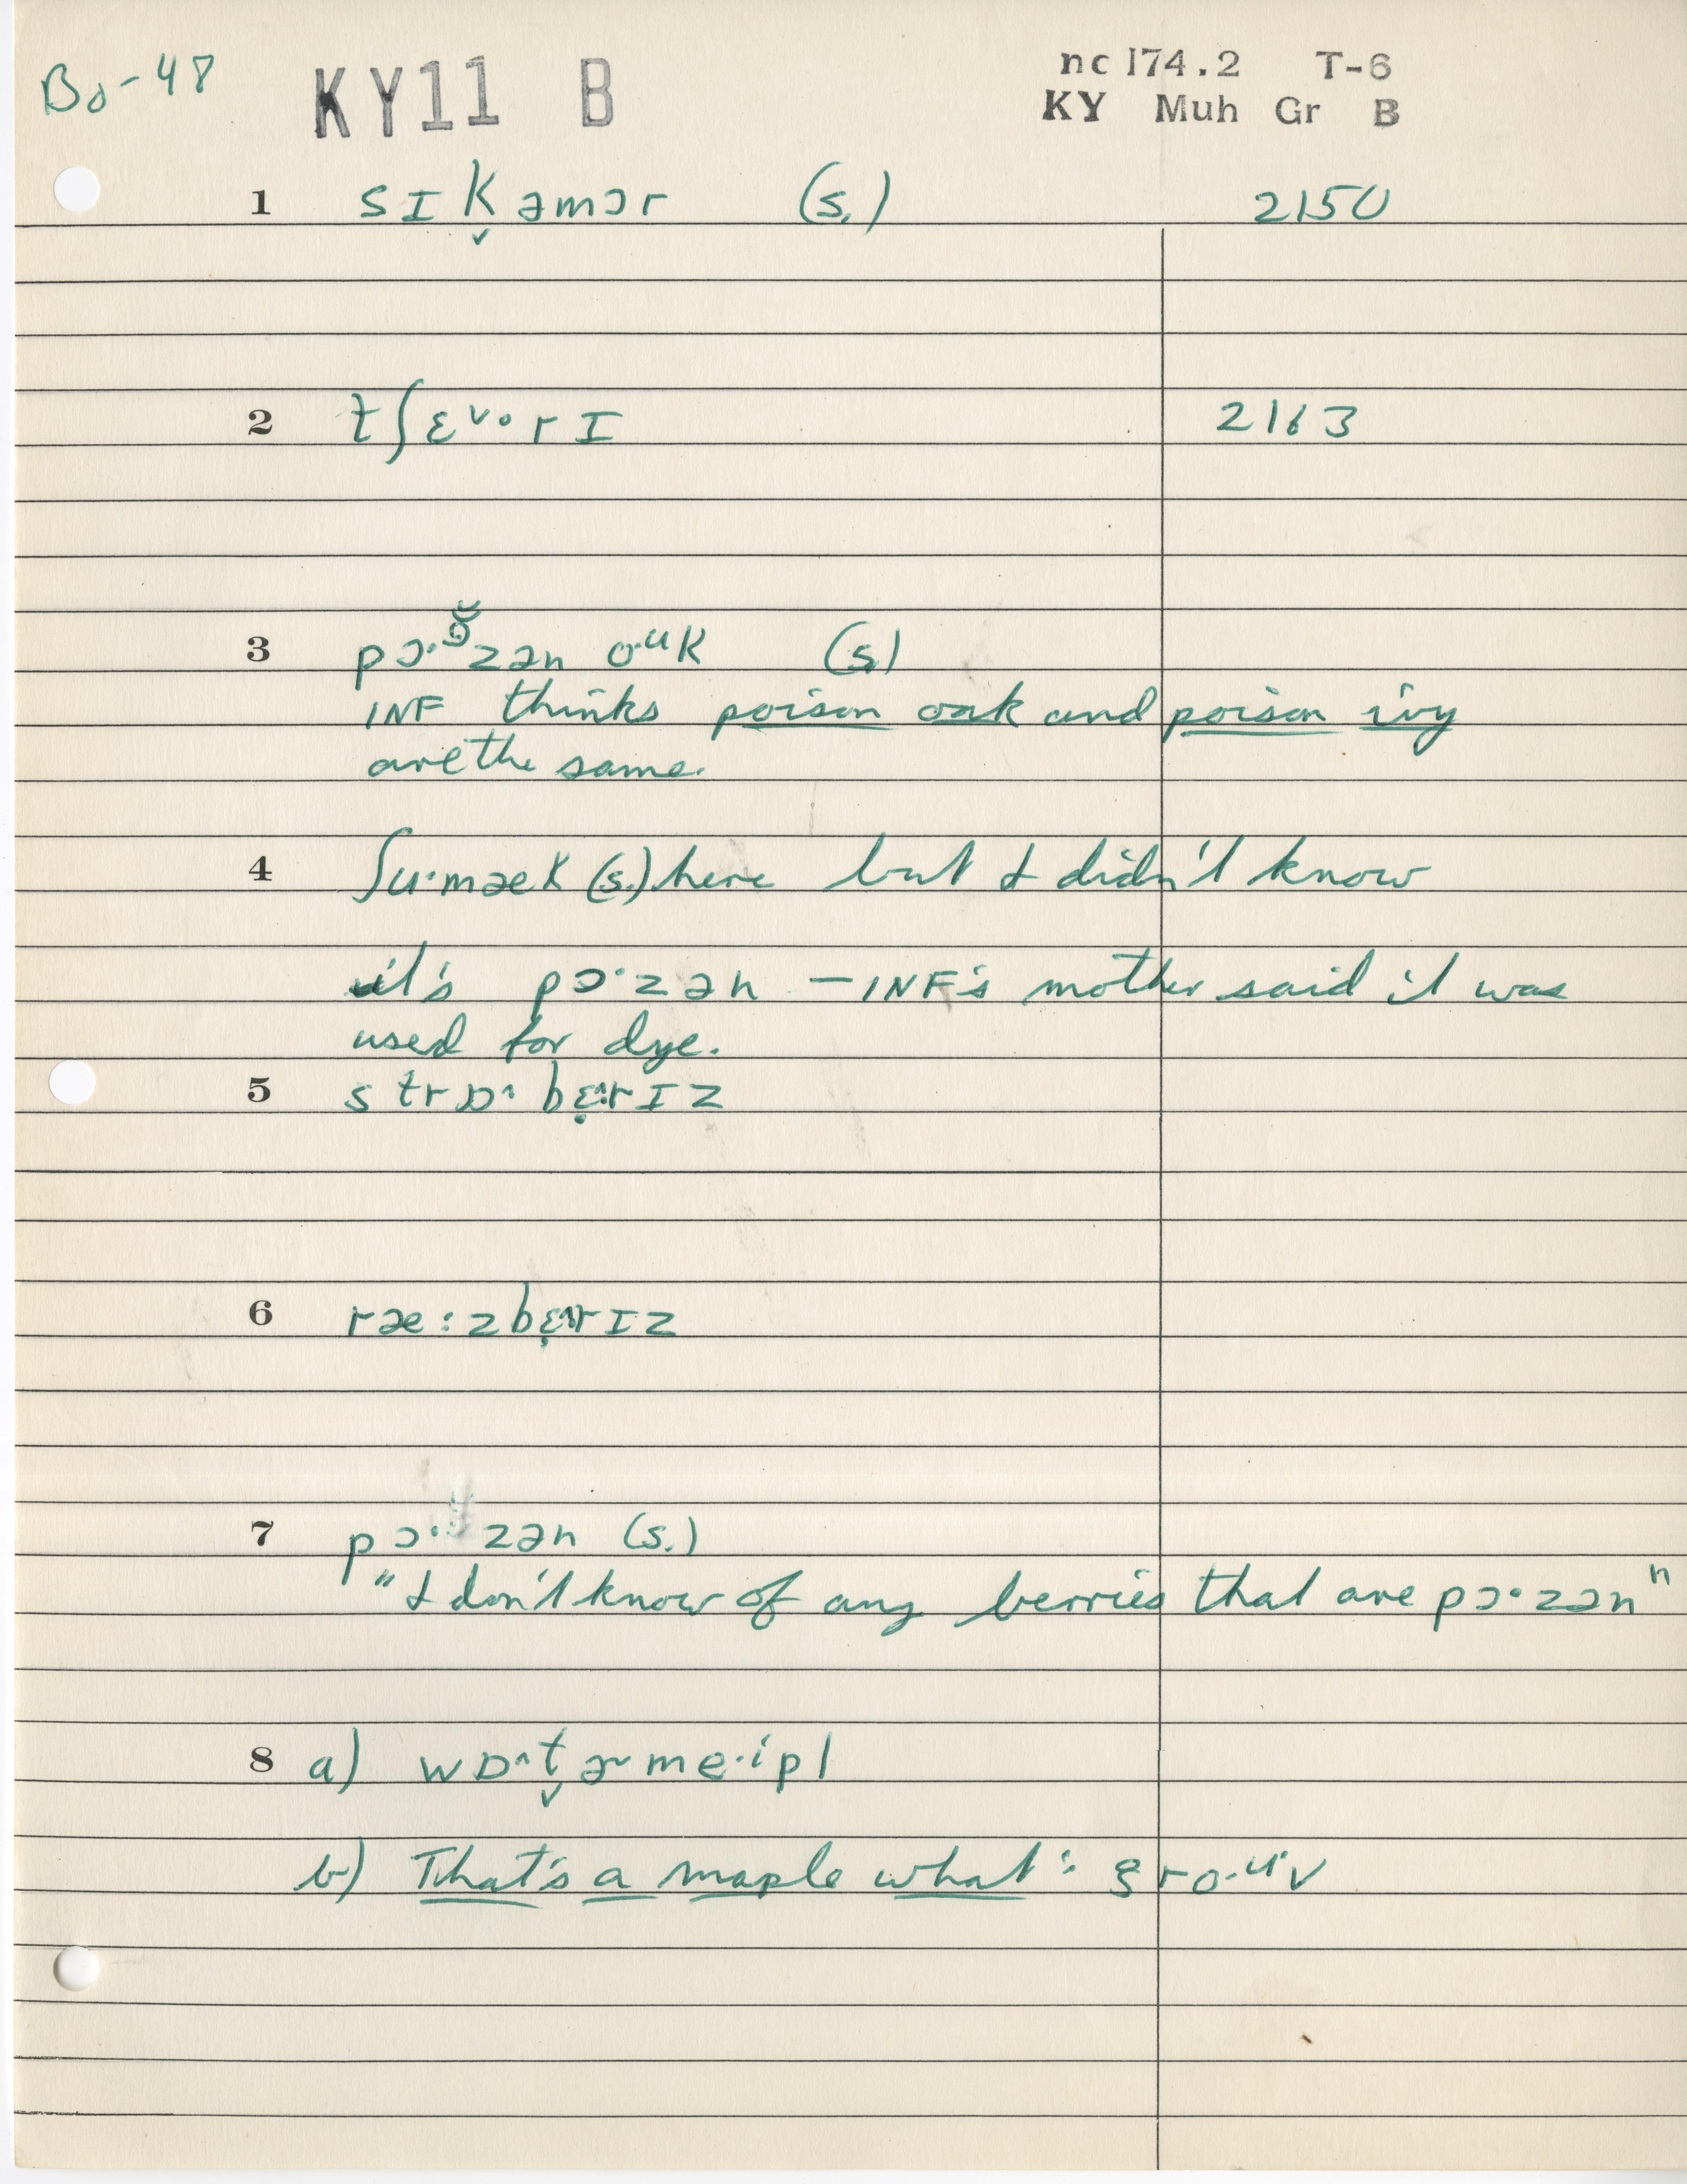 Bo-48 KY11 B nc 174.2 T-6
KY Muh Gr B
1 sɪk̬əmɔr (s.) 2150
2 tʃɛ˅·rɪ 2163
3 pɔ·ɪ̆zən o·ᵘk (s.)
INF thinks poison oak and poison ivy
are the same.
4 ʃu·mæk (s.) here but I didn't know
it's pɔ·zən — INF's mother said it was
used for dye.
5 strɒ˄ bɛ̣˄rɪz
6 ræ:zbɛ̣˄rɪz
7 pɔ· zən (s.)
"I don't know of any berries that are pɔ·zən"
8 a) wɒ˄t̬ɚ me·ⁱpl
b) That's a maple what: gro·ᵘv